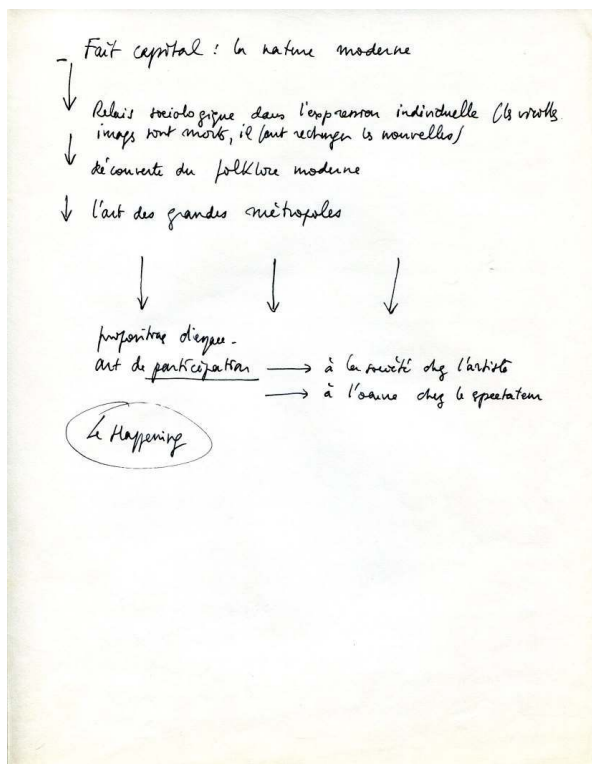 – Fait capital : la nature moderne
Relais sociologique dans l'expression individuelle (les vieilles
images sont mortes, il faut rechanger les nouvelles)
découverte du folklore moderne
l'art des grandes métropoles
propositions d'espace -
art de participation → à la société chez l'artiste
→ à l'œuvre chez le spectateur
Le Happening